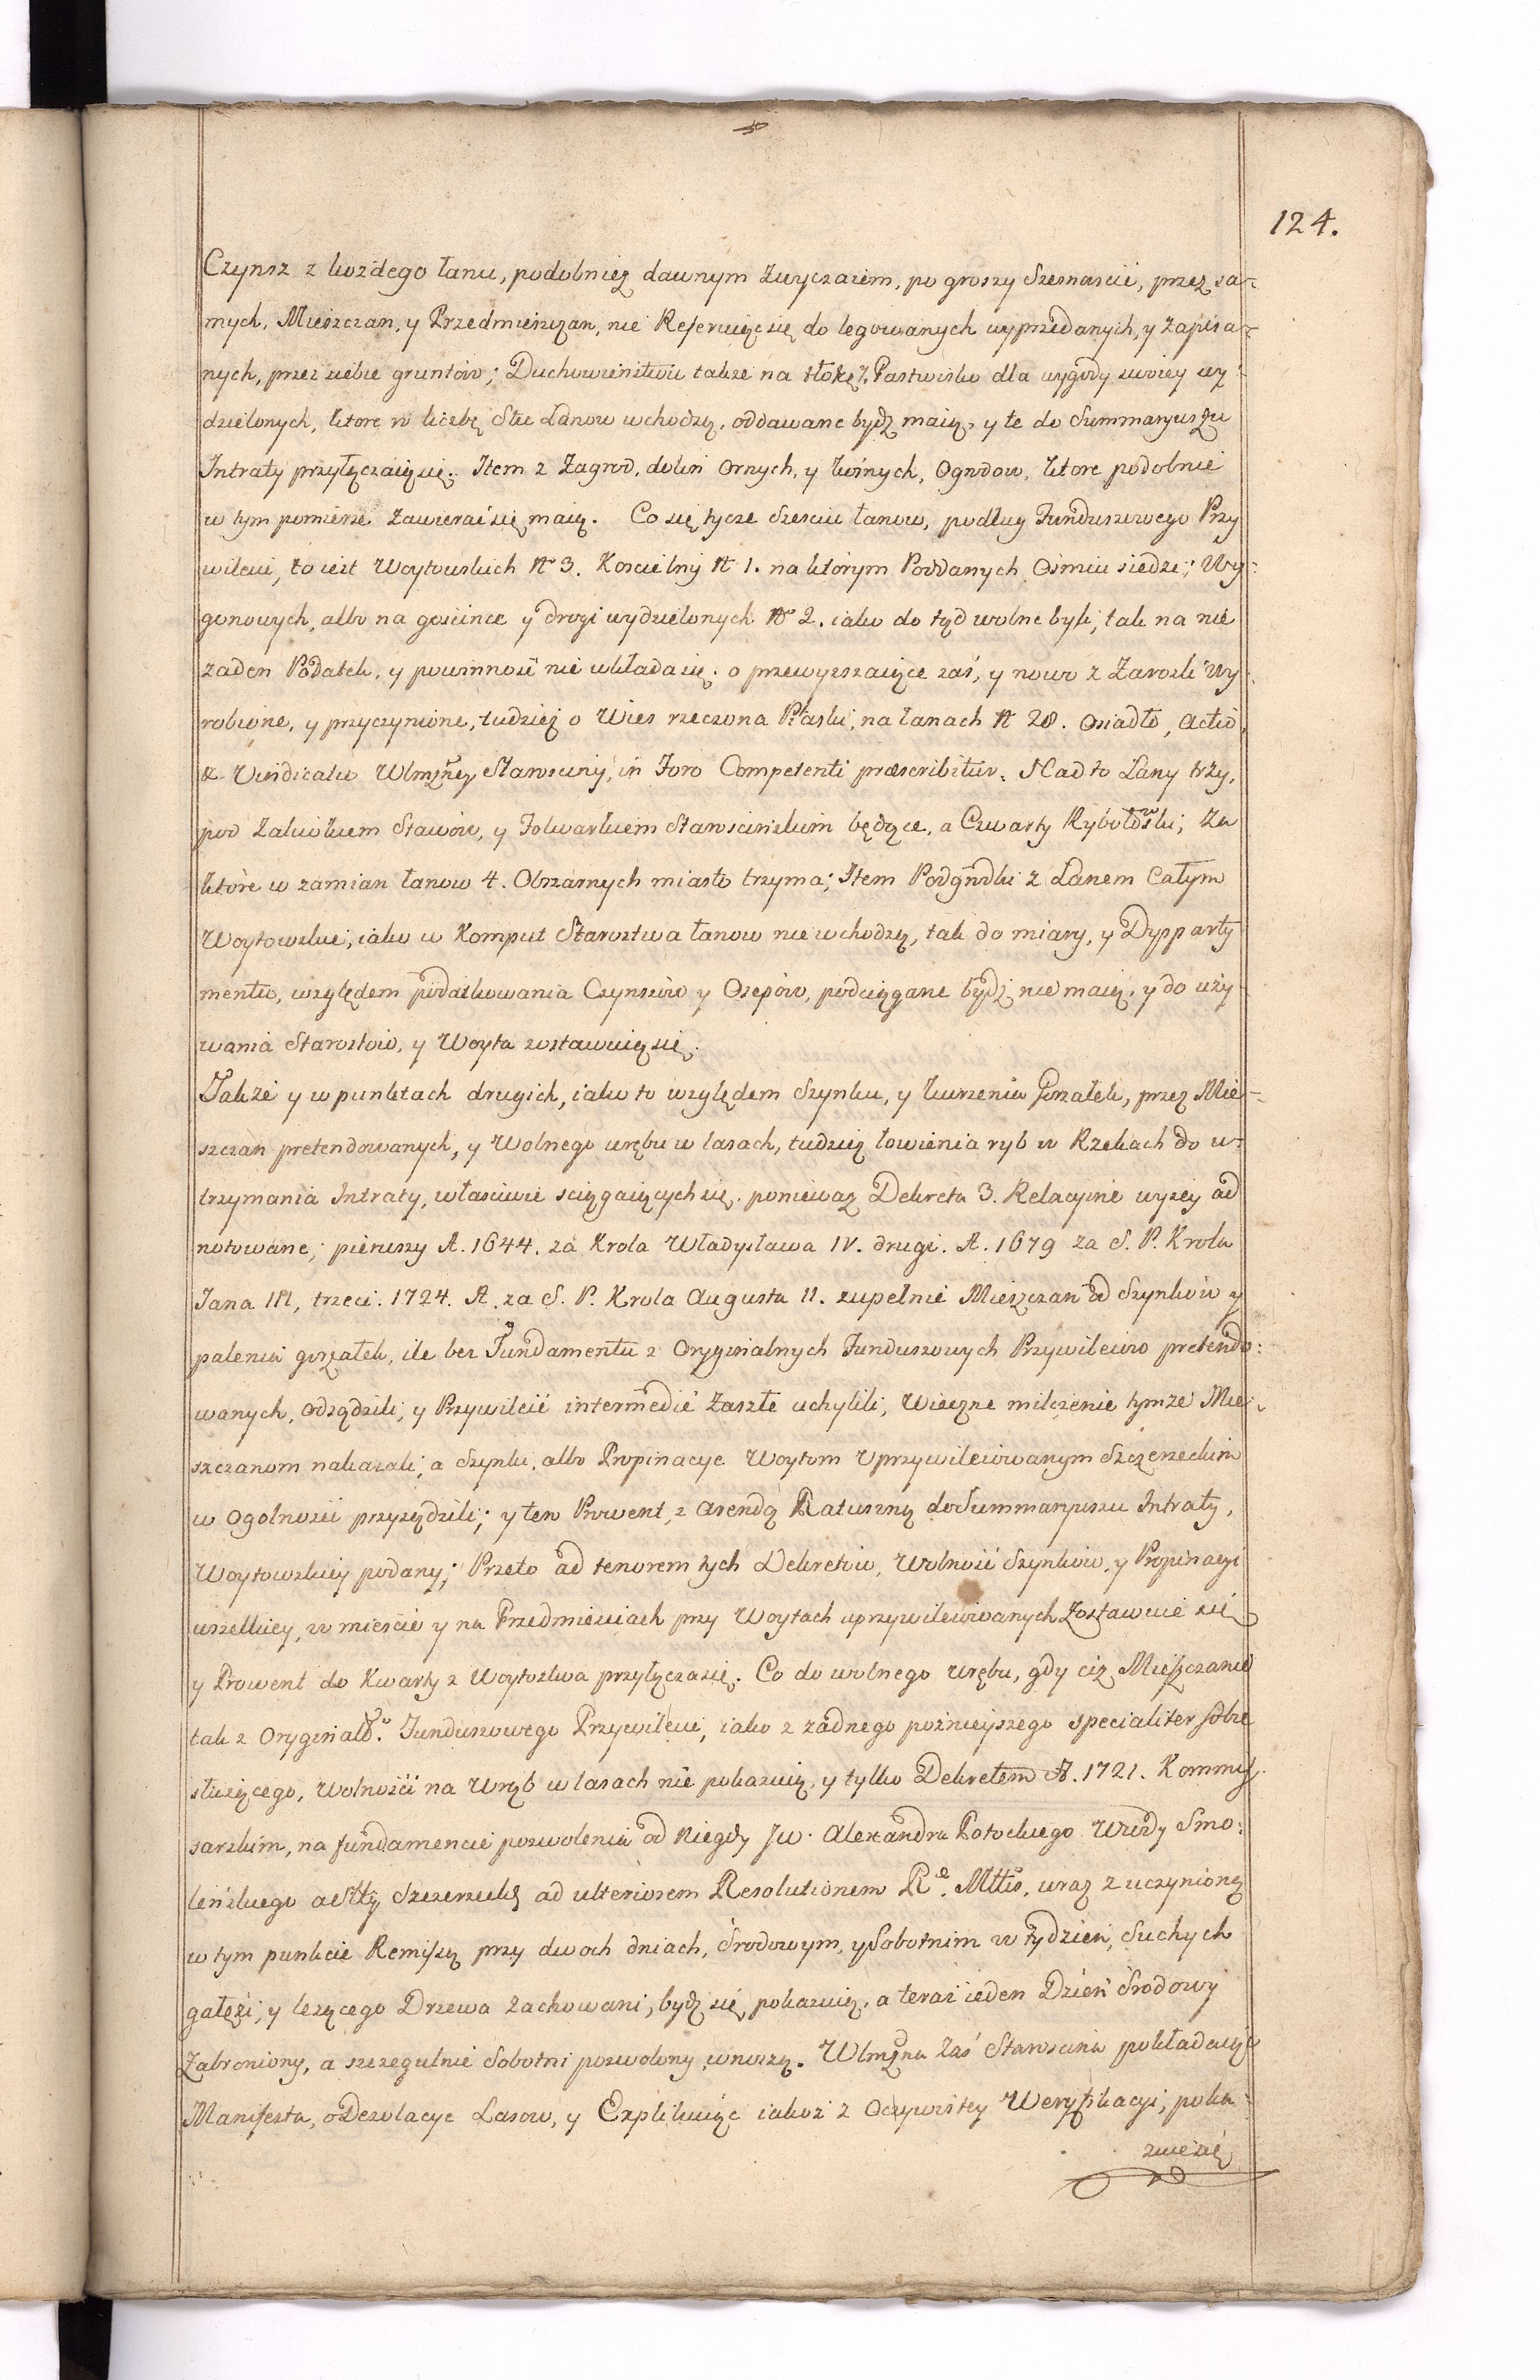 124.
Czynsz z każdego łanu, podobnież dawnym zwyczaiem, po groszy szesnascie, przez sa-
mych, Mieszczan, y Przedmieszczan, nie Referuiąc się do legowanych wyprzedanych, y zapisa-
nych, przez siebie gruntow; Duchowienstwu także na Pastwisko dla wygody swoiey wy-
dzielonych, ktore w liczbę Stu Łanow wchodzą, oddawane bydz maią, y te do Summaryuszu
Intraty przyłączaią się. Item z Zagrod, dolin Ornych, y Ogrodow, ktore podobnie
w tym pomierze zawierać się maią. Co się tycze Sześciu łanow, podług Funduszowego Przy
wileiu, to iest Woytowskich № 3. Koscielny № 1. na którym Poddanych Ośmiu siedzi; Wy-
gonowych, albo na goscince y drogi wydzielonych № 2. iako do tąd wolne byli, tak na nie
zaden Podatek, y powinność nie wkłada się. o przewyzszaiące zaś, y nowo z Zarośli Wy-
robione, y przyczynione, tudziesz o Wies rzeczona Piaski, na łanach № 28. Osiadło, actio,
& Vindicatio Wlmżney Starosciny, in Foro Competenti præscribitur. Nad to Łany trzy,
pod Zalewkiem Stawow, y Folwarkiem Staroscińskim będące, a Czwarty Rybołowski; Za
ktore w zamian łanow 4. Obszarnych miasto trzyma; Item Podgrodki z Łanem Całym
Woytowskie, iako w Komput Starostwa łanow nie wchodzą, tak do miary, y Dyspparty
mentu, względem podatkowania Czynszow y Osepow, podciągane bydz nie maią, y do uży-
wania Starostow, y Woyta zostawuią się.
Także y w punktach drugich, iako to względem Szynku, y kurzenia Gorzałek, przez Mie-
szczan pretendowanych, y Wolnego wrębu w lasach, tudziesz łowienia ryb w Rzekach do u-
trzymania Intraty, własciwie sciągaiących się. ponieważ Dekreta 3. Relacyine wyzey ad
notowane; pierwszy A. 1644. za Krola Władysława IV. drugi. A. 1679 za S. P. Krola
Jana III, trzeci. 1724. A. za S. P. Krola Augusta II. zupełnie Mieszczan od Szynkow y
palenia gorzałek, ile bez Fundamentu z Oryginalnych Funduszowych Przywileiow pretendo-
wanych, odsądzili, y Przywileie intermedie zaszłe uchylili, Wieczne milczenie tymże Mie-
szczanom nakazali; a Szynki, albo Propinacye Woytom Uprzywileiowanym Szczerzeckim
w Ogolnosci przysądzili; y ten Prowent, z Arendą Ratuszną do Summaryuszu Intraty,
Woytowskiey podany; Przeto ad tenorem tych Dekretow, Wolność Szynkow, y Propinacyi
wszelkiey, w miescie y na Przedmiesciach przy Woytach uprzywileiowanych Zostawuie się
y Prowent do Kwarty z Woytostwa przyłącza się. Co do wolnego wrębu, gdy ciż Mieszczanie
tak z Oryginal°. Funduszowego Przywileiu, iako z zadnego poznieyszego specialiter sobie
służącego, Wolności na Wrąb w lasach nie pokazuią, y tylko Dekretem A. 1721. Kommis-
sarskim, na fundamencie pozwolenia od Niegdy Jw. Alexandra Potockiego Wwdy Smo-
leńskiego Szczerzeckg ad ulteriorem Resolutionem R. Mttis, wraz z uczynioną
w tym punkcie Remissą przy dwoch dniach, Srodowym, y Sobotnim w tydzień, Suchych
gałęzi, y lezącego Drzewa zachowani, bydz się pokazuią, a teraz ieden Dzień Srodowy
Zabroniony, a szczegulnie Sobotni pozwolony wnoszą. Wlmżna Zaś Staroscina pokładaiąc
Manifesta, o Dezolacye Lasow, y Explikuiąc iakoż z Oczywistey Weryfikacyi, poka-
zuie się